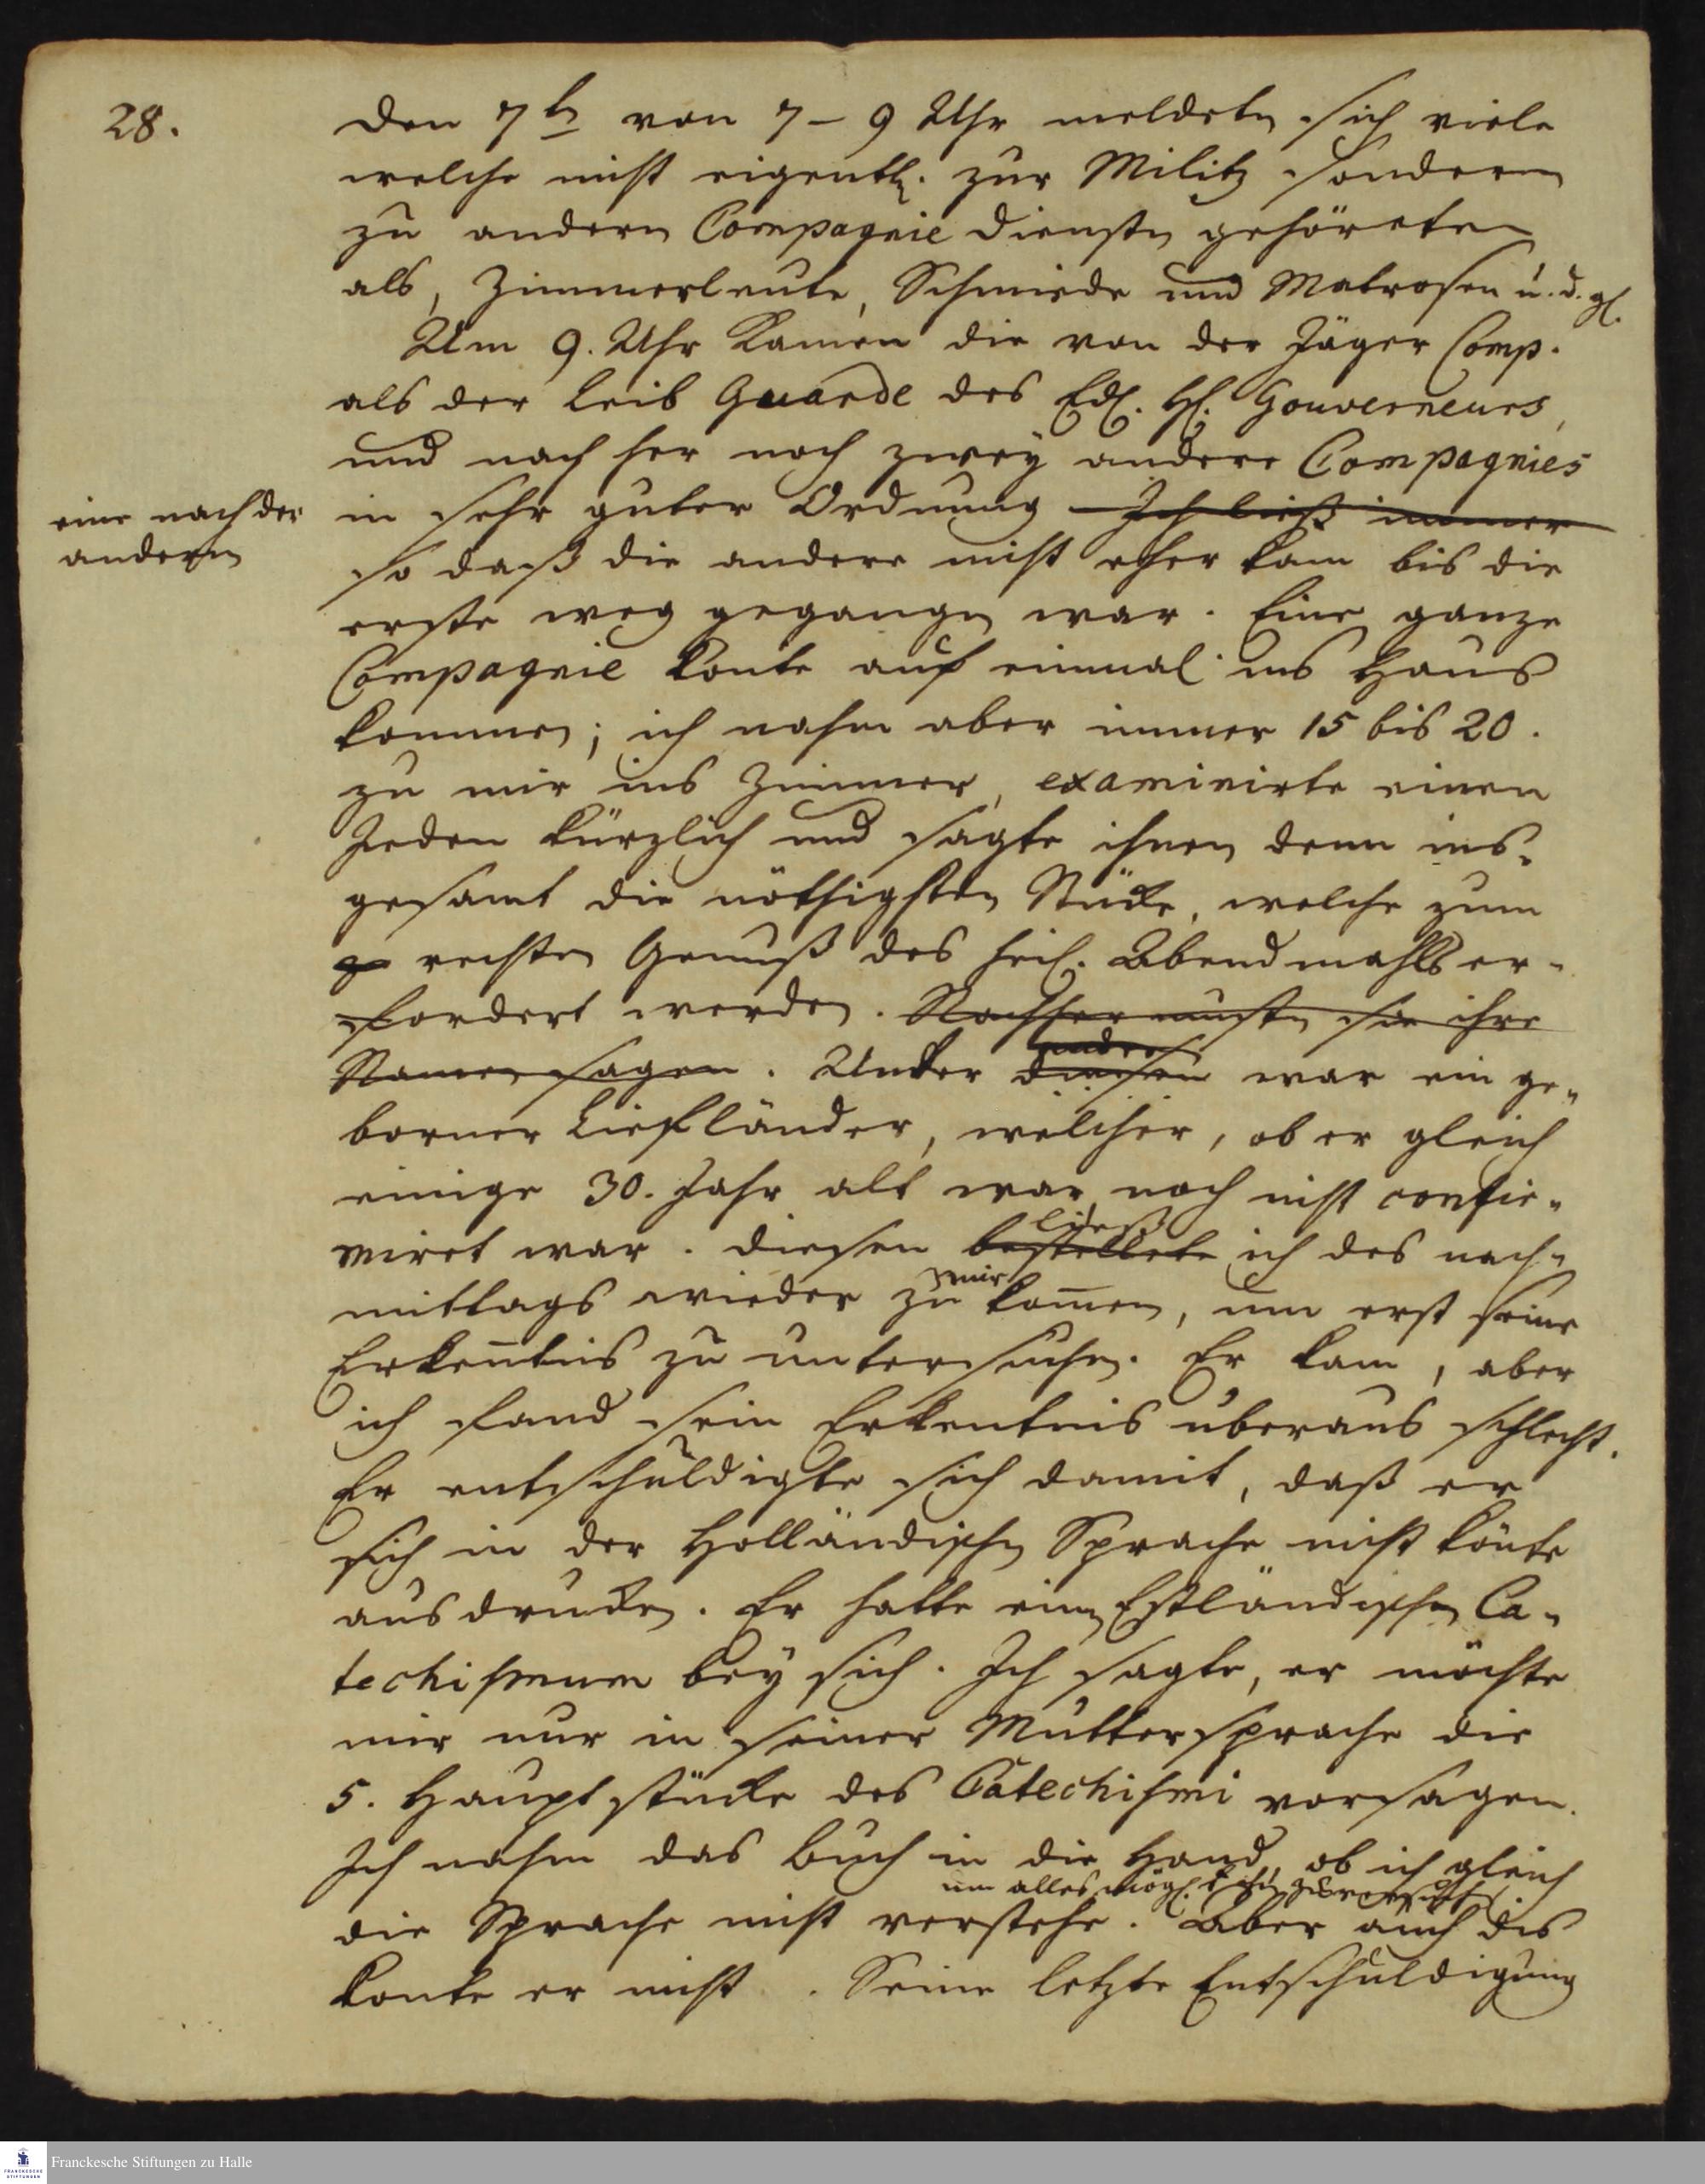 28.
Den 7t von 7 – 9 Uhr meldeten sich viele
welche nicht eigentl. zur Militz sondern
zu andern Compagnie Diensten gehöreten
als, Zimmerleute, Schmiede und Matrosen u. d. gl.
Um 9. Uhr kamen die von der Jäger Comp.
als der Leib Guarde des Edl. H. Gouverneurs,
und nach her noch zwey andere Compagnies
eine nach der
andern
in sehr guter Ordnung Ich ließ immer
so daß die andere nicht eher kam bis die
erste weg gegangen war. Eine ganze
Compagnie konte auf einmal ins Haus
kommen; ich nahm aber immer 15 bis 20.
zu mir ins Zimmer, examinirte einen
Jeden kürzlich und sagte ihnen denn ins-
gesamt die nöthigsten Stücke, welche zum
rechten Genuß des heil. Abendmahls er-
fordert werden. Nachher musten sie ihre
Namen sagen. Unter diesen andern war ein ge-
borner Liefländer, welcher, ob er gleich
einige 30. Jahr alt war noch nicht confir-
miret war. Diesen bestellete ließ ich des nach-
mittags wieder zu mir komen, um erst seine
Erkentnis zu untersuchen. Er kam, aber
ich fand sein Erkentnis überaus schlecht.
Er entschuldigte sich damit, daß er
sich in der Holländischen Sprache nicht könte
ausdrucken. Er hatte einen Estländischen Ca-
techismum bey sich. Ich sagte, er möchte
mir nur in seiner Muttersprache die
5. Hauptstücke des Catechismi vorsagen.
Ich nahm das Buch in die Hand, ob ich gleich
um alles mögl.
die Sprache nicht verstehe. Aber auch dis
konte er nicht. Seine letzte Entschuldigung
Franckesche Stiftungen zu Halle